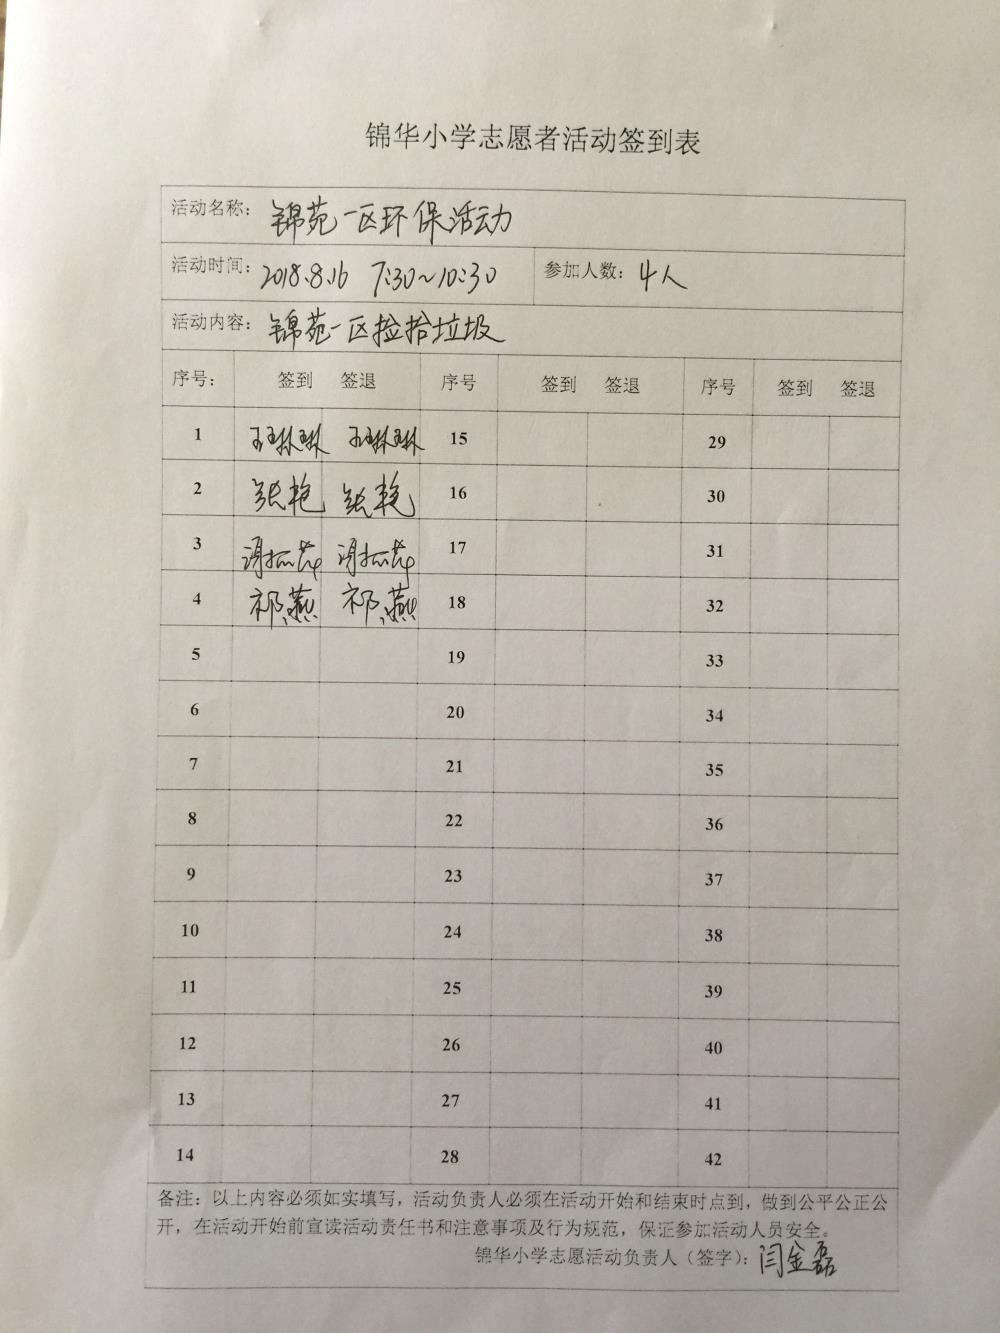 锦华小学志愿者活动签到表
活动名称： 锦苑一区环保活动
活动时间： 2018.8.16 7:30~10:30 参加人数： 4人
活动内容： 锦苑一区捡拾垃圾
序号： 签到 签退 序号 签到 签退 序号 签到 签退
1 王琳琳 王琳琳 15 29
2 张艳 张艳 16 30
3 17 31
4 祁燕 祁燕 18 32
5 19 33
6 20 34
7 21 35
8 22 36
9 23 37
10 24 38
11 25 39
12 26 40
13 27 41
14 28 42
备注：以上内容必须如实填写，活动负责人必须在活动开始和结束时点到，做到公平公正公
开，在活动开始前宣读活动责任书和注意事项及行为规范，保证参加活动人员安全。
锦华小学志愿活动负责人（签字）：闫金磊